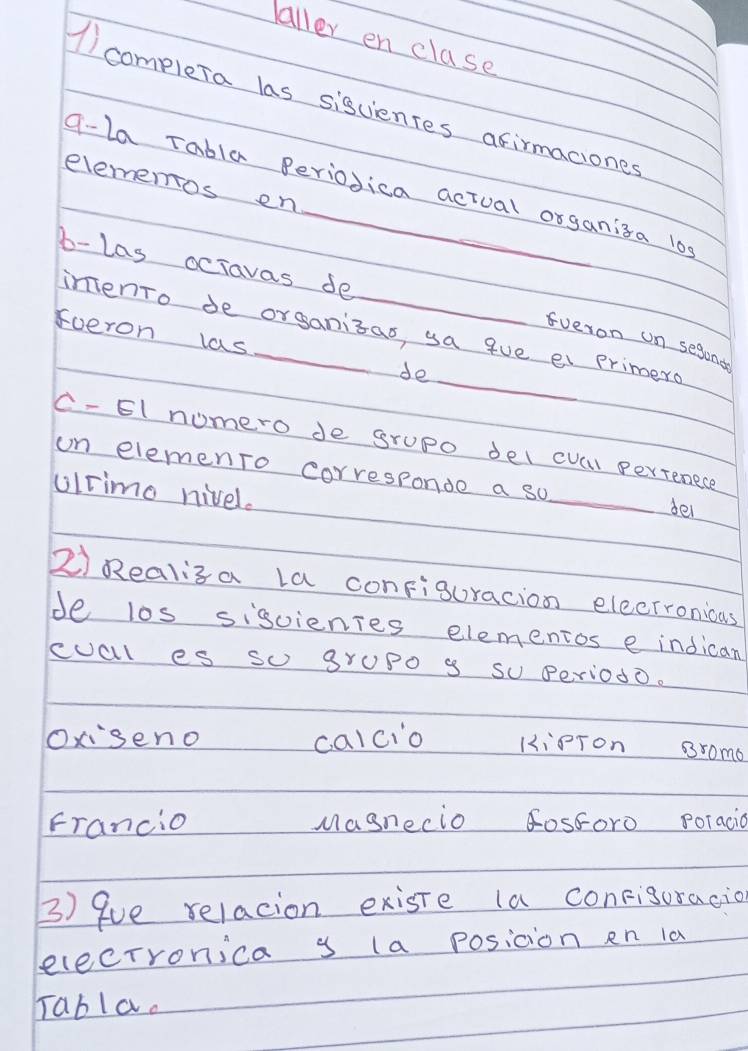 Taller en clase
1) completa las siguientes afirmaciones
a- La tabla Periodica actual organiza los
elementos en
b- Las octavas de fueron un segundo
intento de organizao, ya que el primero
fueron las de
c- El numero de grupo del cual pertenece
un elemento corresponde a su del
ultimo nivel.
2) Realiza la configuracion electronicas
de los siguientes elementos e indican
cual es su grupo y su periodo.
oxigeno calcio kipton Bromo
Francio Magnecio fosforo potacio
3) que relacion existe la configuracion
electronica y la posicion en la
tabla.